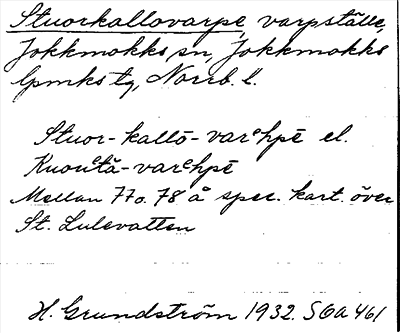 Stuorkallovarpe, varpställe,
Jokkmokks sn, Jokkmokks
lpmks tg, Norrb. l.
Stuor-kallō-varᵉhpē el.
Kuouᵉtă-varᵉhpē
Mellan 77 o. 78 å spec. kart. över
St. Lulevatten
H. Grundström 1932. SOA 461